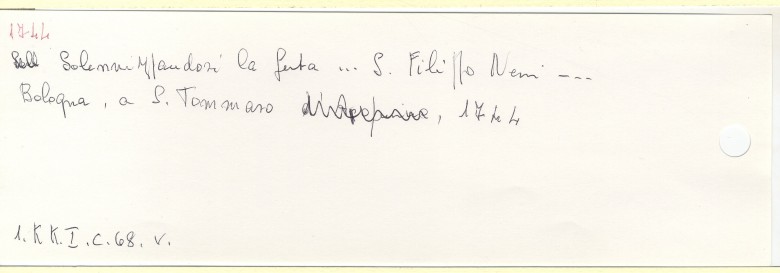 1744
Solennizzandosi la festa ... S. Filippo Neri ---
Bologna, a S. Tommaso d'Aquino, 1744
1. K K. I. c. 68. v.